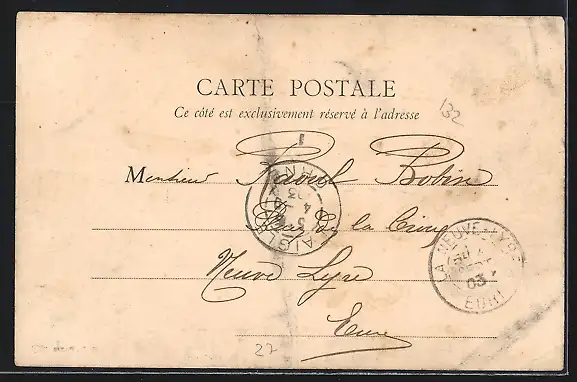 CARTE POSTALE
Ce côté est exclusivement réservé à l'adresse
132
Monsieur Raoul Robin
de la
Neuve Lyre
Eure
LA NEUVE-LYRE
03
EURE
27